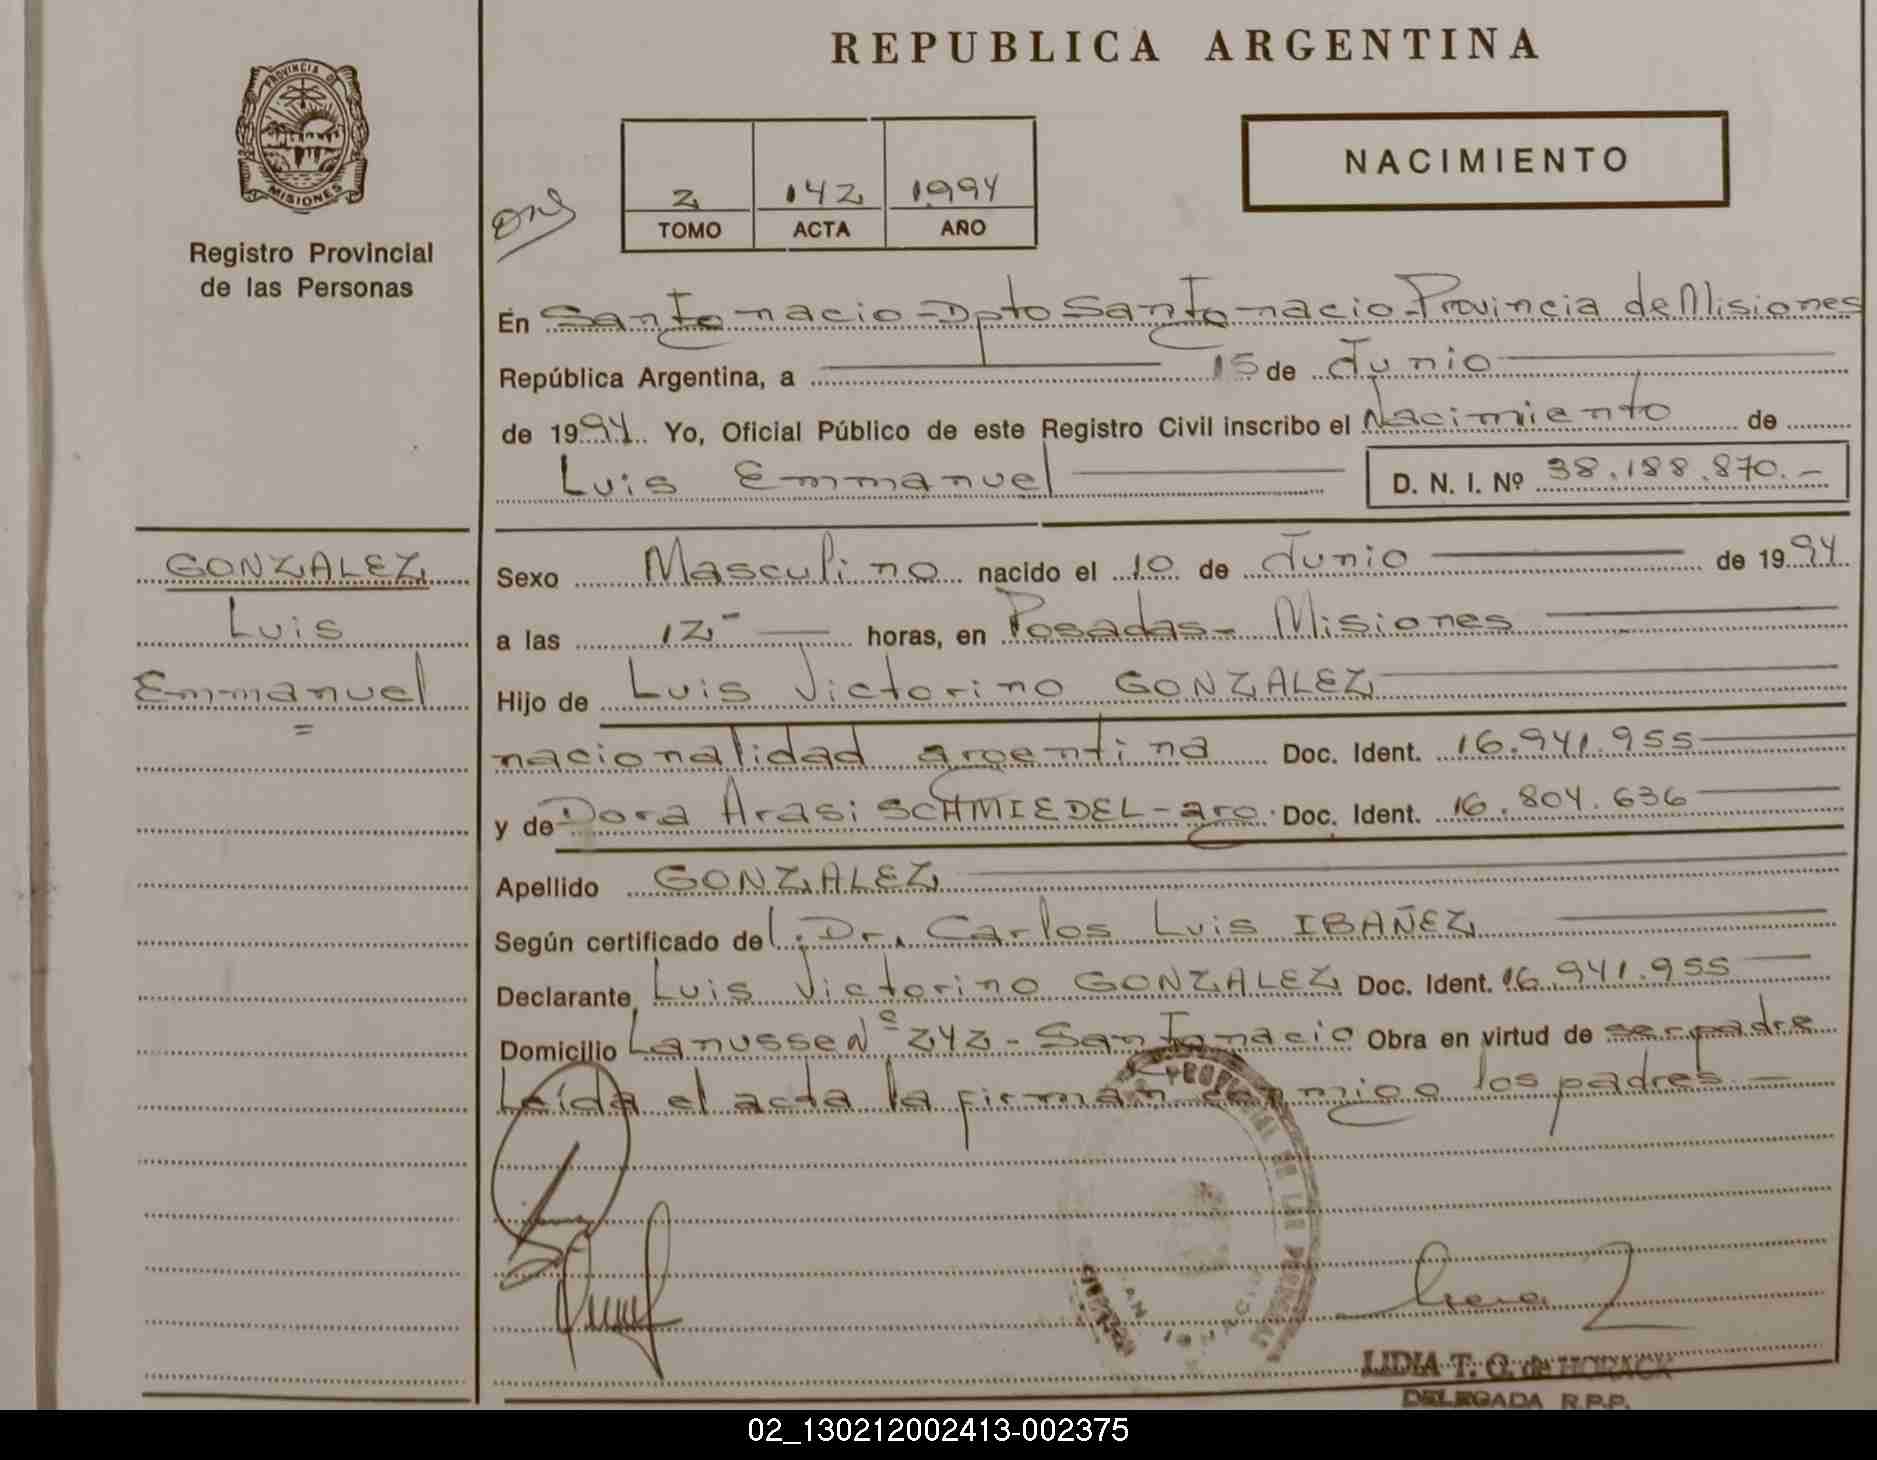 REPUBLICA ARGENTINA
PROVINCIA DE
MISIONES
Registro Provincial
de las Personas
NACIMIENTO
2 142 1994
TOMO ACTA AÑO
En San Ignacio - Dpto San Ignacio - Provincia de Misiones
República Argentina, a 15 de Junio
de 1994 Yo, Oficial Público de este Registro Civil inscribo el Nacimiento de
Luis Emmanuel D. N. I. Nº 38.188.870.-
GONZALEZ
Luis
Emmanuel
=
Sexo Masculino nacido el 10 de Junio de 1994
a las 12- horas, en Posadas - Misiones
Hijo de Luis Victorino GONZALEZ
nacionalidad argentina Doc. Ident. 16.941.955
y de Dora Arasi SCHMIEDEL - arg. Doc. Ident. 16.804.636
Apellido GONZALEZ
Según certificado del : Dr. Carlos Luis IBAÑEZ
Declarante Luis Victorino GONZALEZ Doc. Ident. 16.941.955
Domicilio Lanusse Nº 242 - San Ignacio Obra en virtud de ser padre
Leída el acta la firman conmigo los padres -
LIDIA T. G. de HORACK
DELEGADA R.P.P.
02_130212002413-002375